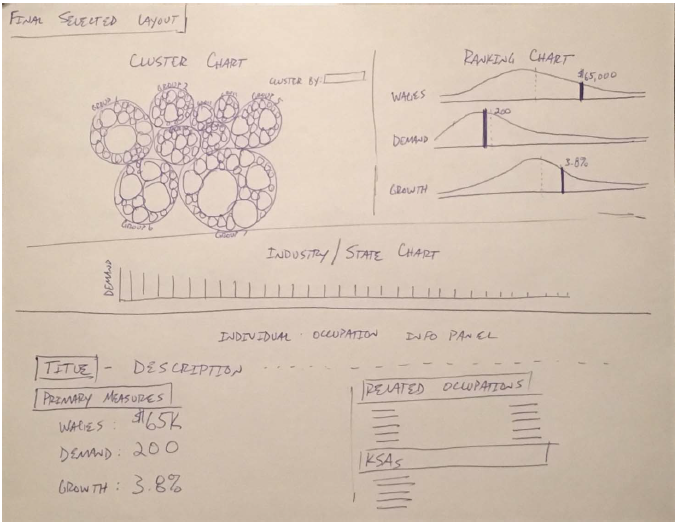 FINAL SELECTED LAYOUT
CLUSTER CHART
CLUSTER BY:
GROUP 1
GROUP 2
GROUP 5
GROUP 6
GROUP 7
RANKING CHART
WAGES
$65,000
DEMAND
200
GROWTH
3.8%
INDUSTRY/STATE CHART
DEMAND
INDIVIDUAL OCCUPATION INFO PANEL
TITLE - DESCRIPTION
PRIMARY MEASURES
WAGES: $65K
DEMAND: 200
GROWTH: 3.8%
RELATED OCCUPATIONS
KSAs